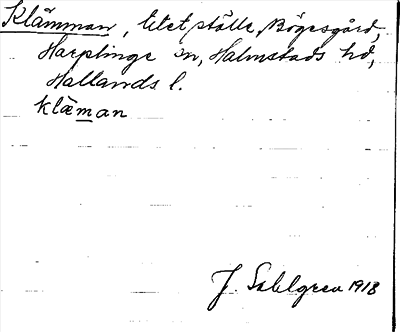 Klämman, litet ställe, Bögesgård,
Harplinge sn, Halmstads hd,
Hallands l.
klæman
J. Sahlgren 1918